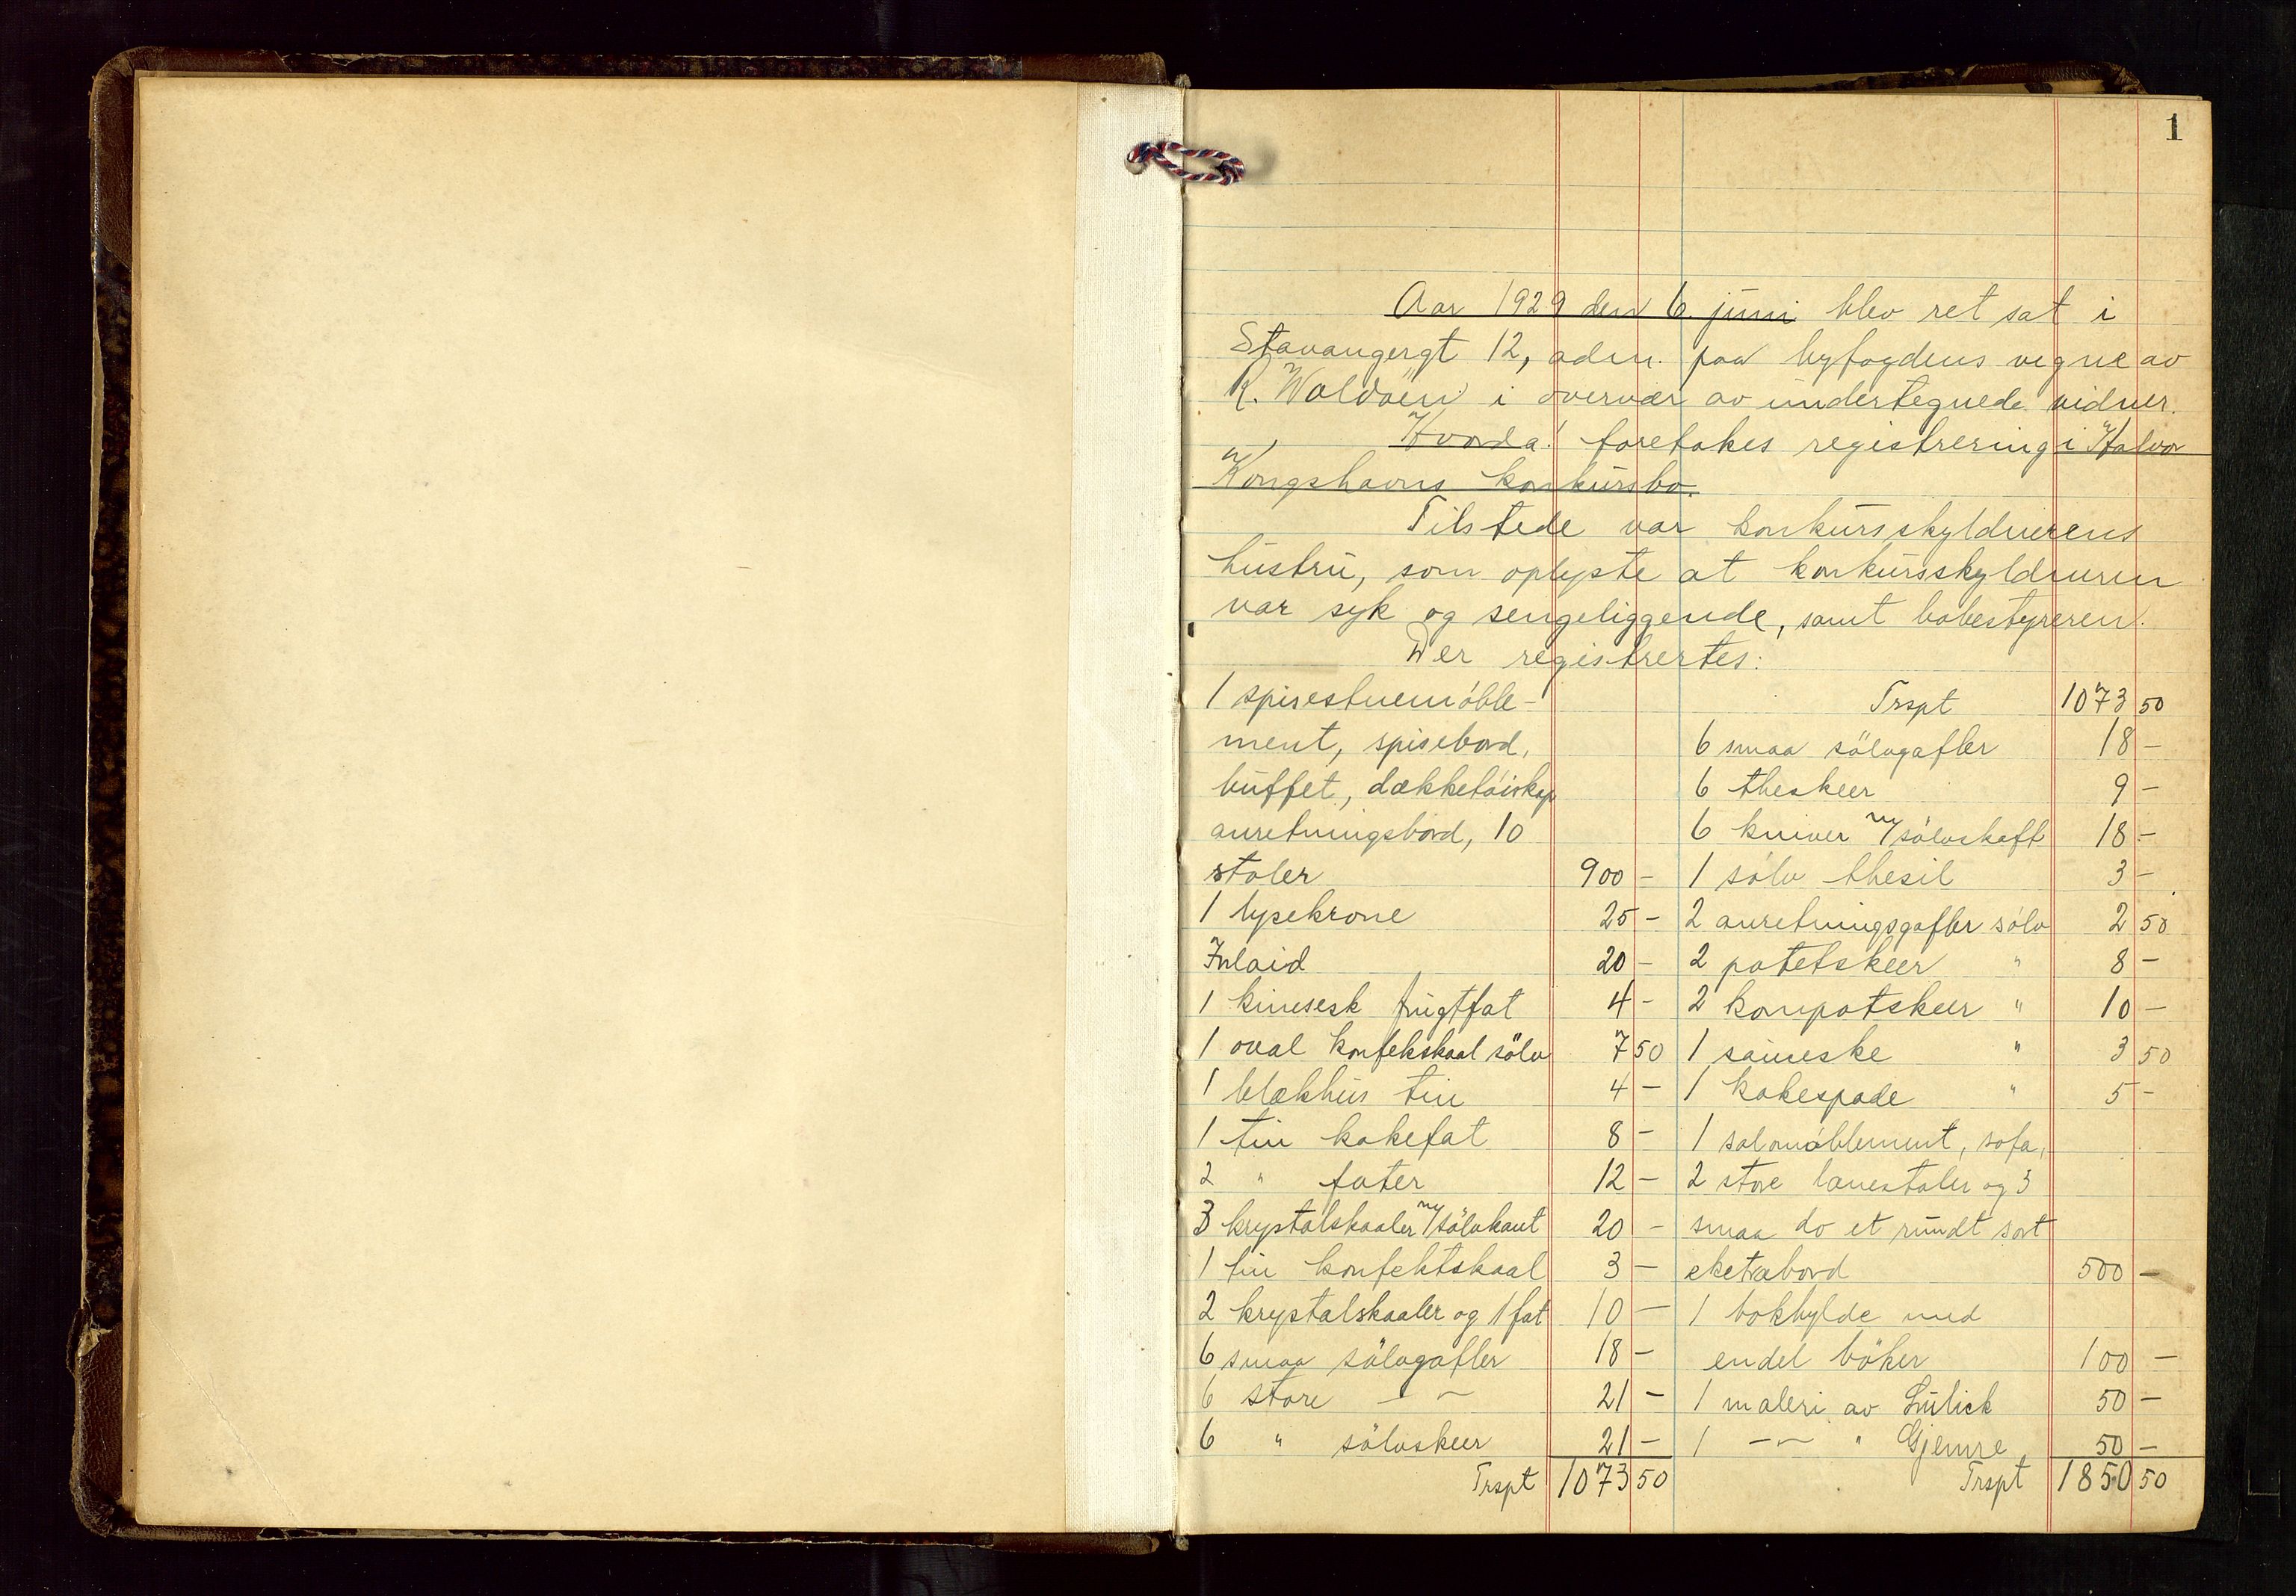 1
Aar 1929 den 6. juni blev ret sat i
Stavangergt 12, adm. paa byfogdens vegne av
R. Waldøen i overvær av undertegnede vidner.
Hvorda! foretokes registrering i Halvor
Kongshavns konkursbo.
Tilstede var konkursskyldnerens
hustru, som oplyste at konkursskyldneren
var syk og sengeliggende, samt bobestyreren.
Der registrertes:
1 spisestuemöble-
ment, spisebord,
buffet, dækketöiskap
anretningsbord, 10
stoler 900 -
1 lysekrone 25 -
Inlaid 20 -
1 kinesisk frugtfat 4 -
1 oval konfekskaal sölv 7 50
1 blækhus tin 4 -
1 tin kakefat 8 -
2 " fater 12 -
3 krystalskaaler m/sölvkant 20 -
1 tin konfektskaal 3 -
2 krystalskaaler og 1 fat 10 -
6 smaa sölvgafler 18 -
6 store - " - 21 -
6 " sölvskeer 21 -
Trspt 1073 50
Trspt 1073 50
6 smaa sölvgafler 18 -
6 theskeer 9 -
6 kniver m/sölvskaft 18 -
1 sölv thesil 3 -
2 anretningsgafler sölv 2 50
2 potetskeer " 8 -
2 kompotskeer " 10 -
1 sauseske " 3 50
1 kakespade " 5 -
1 salonmöblement, sofa,
2 store lænestoler og 3
smaa do et rundt sort
eketræbord 500 -
1 bokhylde med
endel böker 100 -
1 maleri av 50 -
1 - " - " Gjemre 50 -
Trspt 1850 50